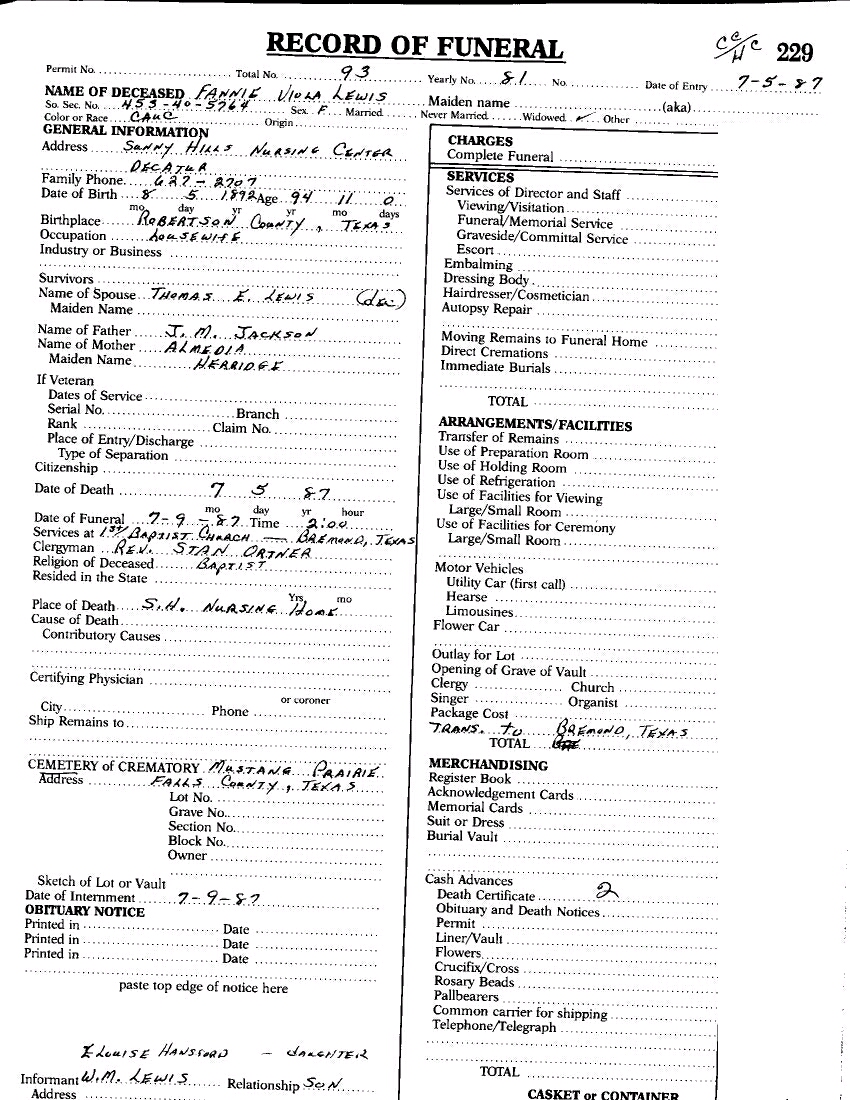 RECORD OF FUNERAL
229
Permit No. Total No. 93 Yearly No. 81 No. Date of Entry 7-5-87
NAME OF DECEASED FANNIE VIOLA LEWIS Maiden name (aka)
So. Sec. No. 453-40-5764 Sex F Married Never Married Widowed ✓ Other
Color or Race CAUC Origin
GENERAL INFORMATION
Address SUNNY HILLS NURSING CENTER
DECATUR
Family Phone 627-2707
Date of Birth 8 5 1892 Age 94 11 0
mo day yr yr mo days
Birthplace ROBERTSON COUNTY, TEXAS
Occupation HOUSEWIFE
Industry or Business
Survivors
Name of Spouse THOMAS E. LEWIS (dec)
Maiden Name
Name of Father J. M. JACKSON
Name of Mother ALMEDIA
Maiden Name HERRIDGE
If Veteran
Dates of Service
Serial No. Branch
Rank Claim No.
Place of Entry/Discharge
Type of Separation
Citizenship
Date of Death 7 5 87
mo day yr hour
Date of Funeral 7-9-87 Time 2:00
Services at 1st BAPTIST CHURCH — BREMOND, TEXAS
Clergyman REV. STAN ORTNER
Religion of Deceased BAPTIST
Resided in the State
Yrs. mo
Place of Death S.H. NURSING HOME
Cause of Death
Contributory Causes
Certifying Physician
or coroner
City Phone
Ship Remains to
CEMETERY of CREMATORY MUSTANG PRAIRIE
Address FALLS COUNTY, TEXAS
Lot No.
Grave No.
Section No.
Block No.
Owner
Sketch of Lot or Vault
Date of Internment 7-9-87
OBITUARY NOTICE
Printed in Date
Printed in Date
Printed in Date
paste top edge of notice here
ELOUISE HANSFORD - DAUGHTER
Informant W.M. LEWIS Relationship SON
Address
CHARGES
Complete Funeral
SERVICES
Services of Director and Staff
Viewing/Visitation
Funeral/Memorial Service
Graveside/Committal Service
Escort
Embalming
Dressing Body
Hairdresser/Cosmetician
Autopsy Repair
Moving Remains to Funeral Home
Direct Cremations
Immediate Burials
TOTAL
ARRANGEMENTS/FACILITIES
Transfer of Remains
Use of Preparation Room
Use of Holding Room
Use of Refrigeration
Use of Facilities for Viewing
Large/Small Room
Use of Facilities for Ceremony
Large/Small Room
Motor Vehicles
Utility Car (first call)
Hearse
Limousines
Flower Car
Outlay for Lot
Opening of Grave of Vault
Clergy Church
Singer Organist
Package Cost
TRANS. to BREMOND, TEXAS
TOTAL
MERCHANDISING
Register Book
Acknowledgement Cards
Memorial Cards
Suit or Dress
Burial Vault
Cash Advances
Death Certificate 2
Obituary and Death Notices
Permit
Liner/Vault
Flowers
Crucifix/Cross
Rosary Beads
Pallbearers
Common carrier for shipping
Telephone/Telegraph
TOTAL
CASKET or CONTAINER